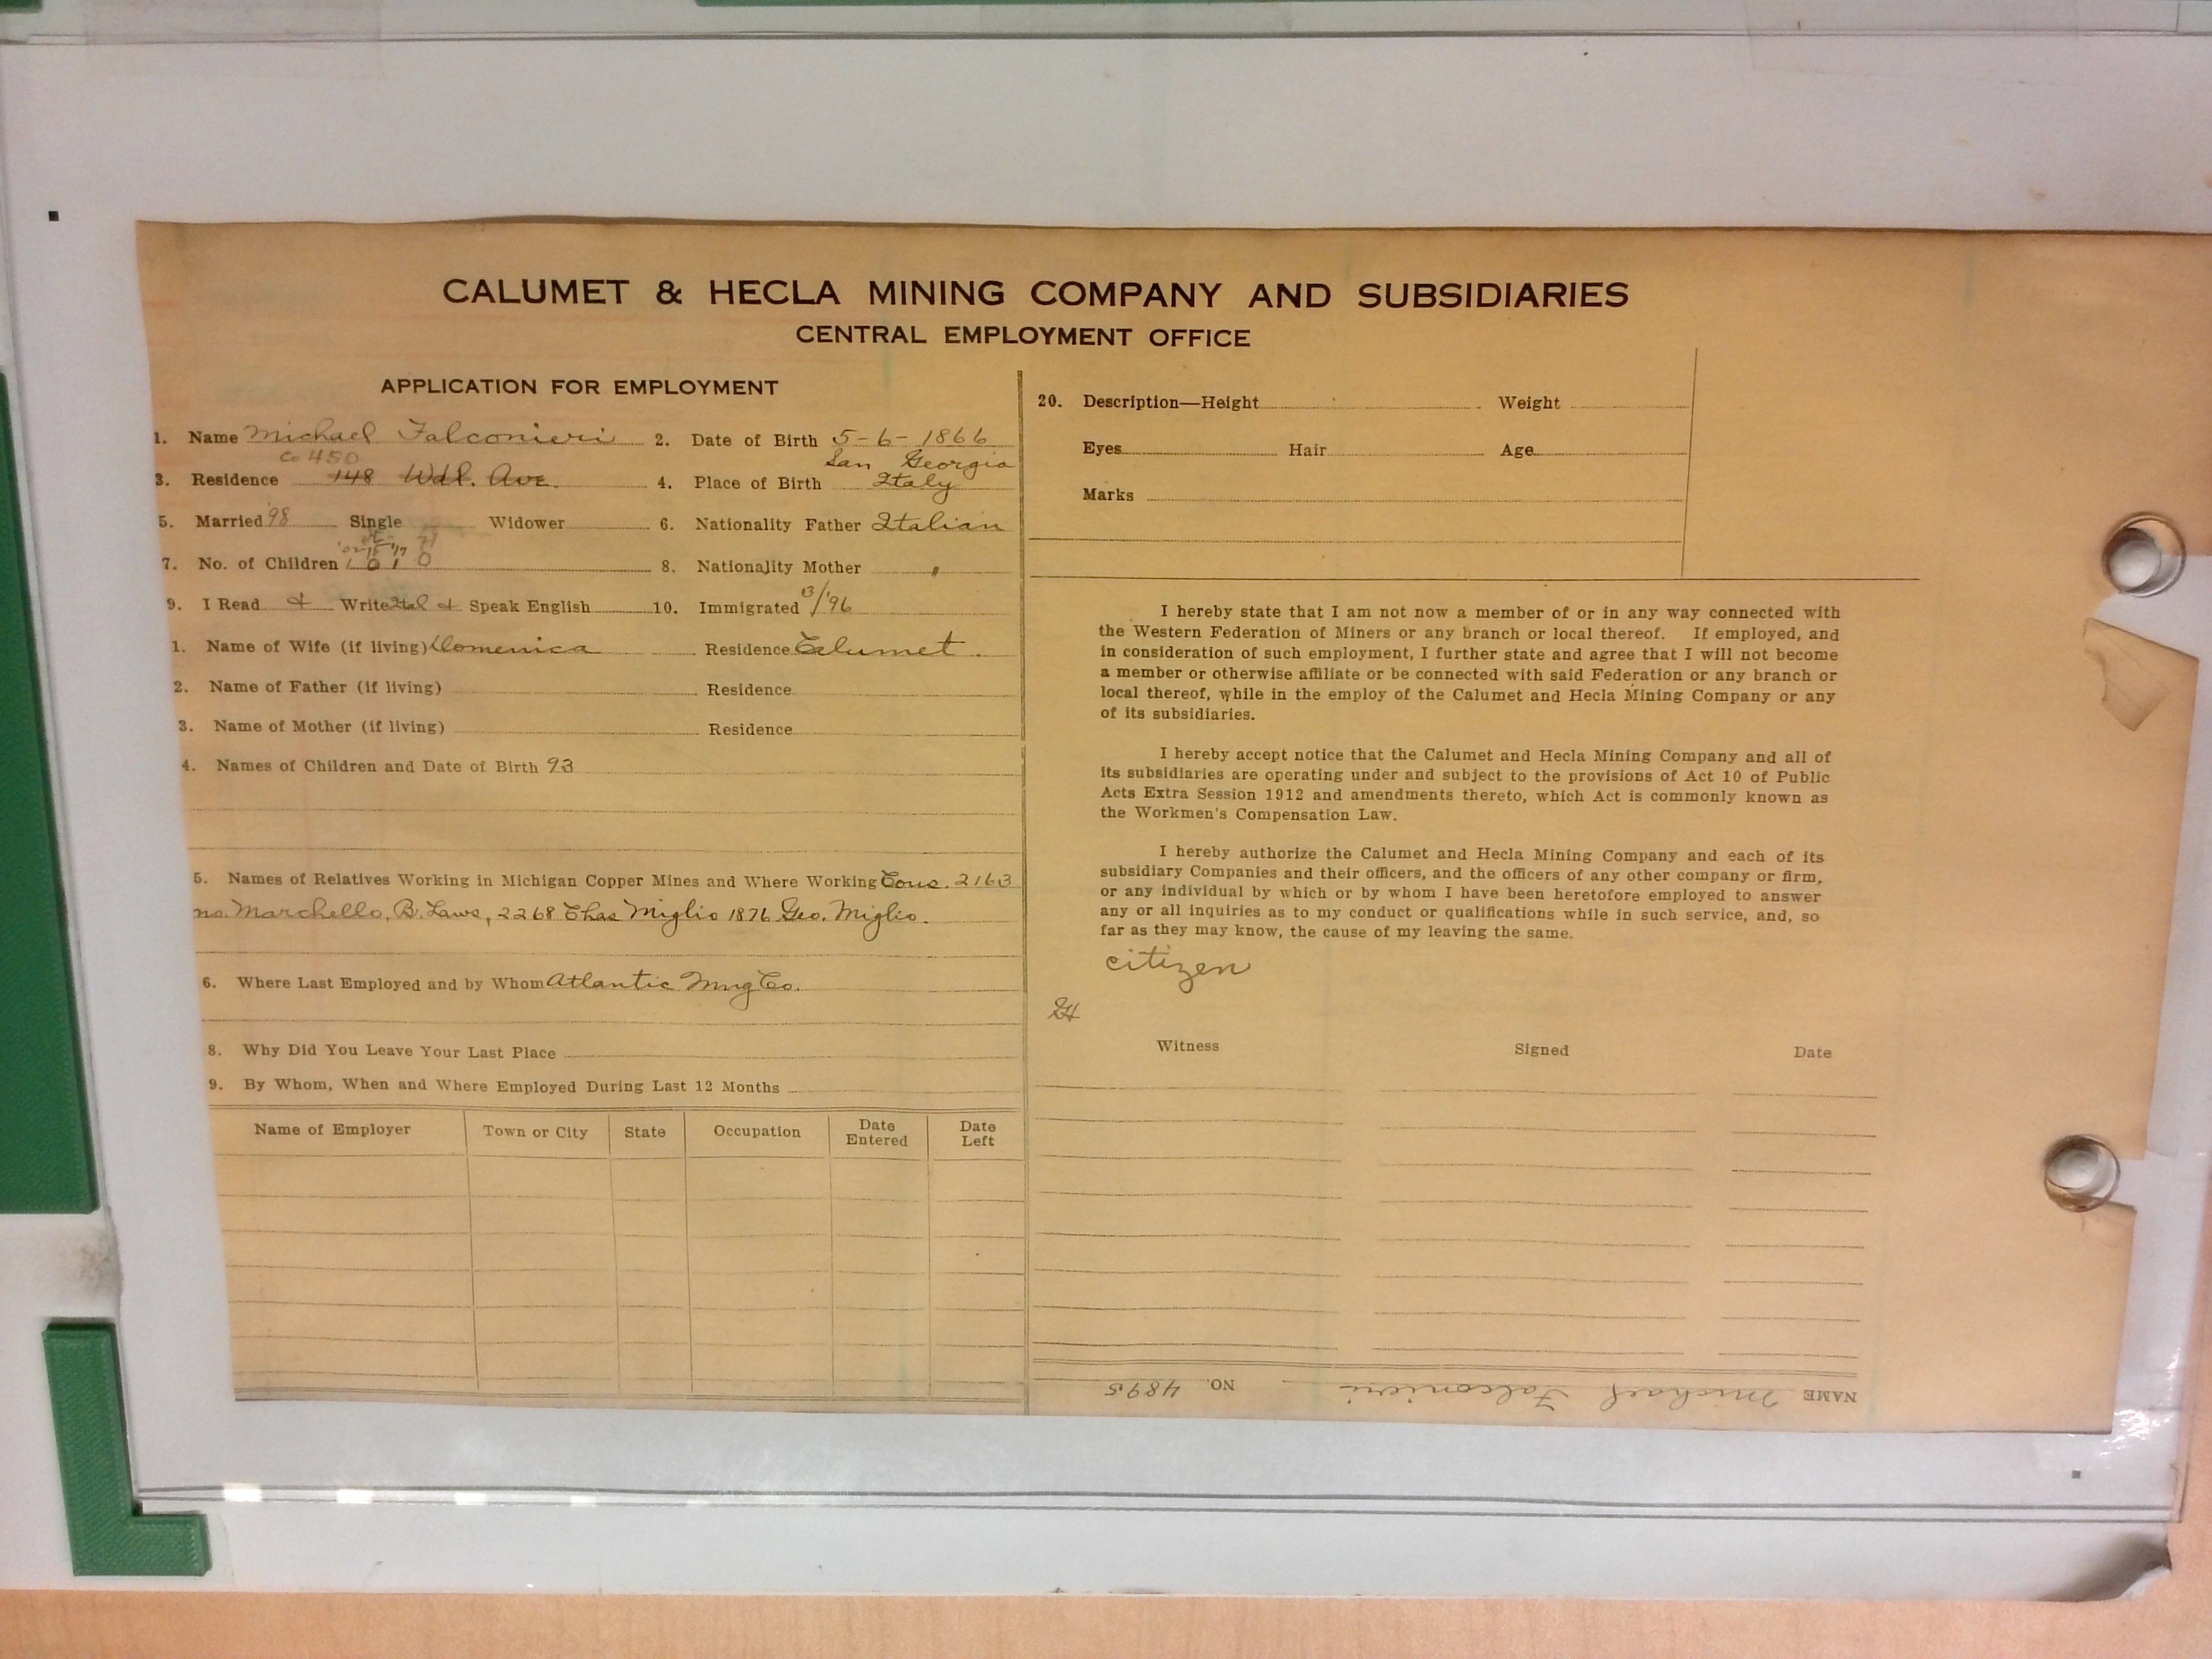 CALUMET & HECLA MINING COMPANY AND SUBSIDIARIES
CENTRAL EMPLOYMENT OFFICE
APPLICATION FOR EMPLOYMENT
1. Name Michael Falconieri 2. Date of Birth 5-6-1866
Co 450
San Georgio
3. Residence 148 Wdl. Ave. 4. Place of Birth Italy
5. Married '98 Single Widower 6. Nationality Father Italian
'02 '15 '17
7. No. of Children 1 0 1 0 8. Nationality Mother "
9. I Read & Write Ital & Speak English 10. Immigrated 13/'96
1. Name of Wife (if living) Domenica Residence Calumet.
2. Name of Father (if living) Residence
3. Name of Mother (if living) Residence
4. Names of Children and Date of Birth 93
5. Names of Relatives Working in Michigan Copper Mines and Where Working Cous. 2163
no. Marchello, B. Laws, 2268 Chas Miglio 1876 Geo. Miglio.
6. Where Last Employed and by Whom Atlantic Mng Co.
8. Why Did You Leave Your Last Place
9. By Whom, When and Where Employed During Last 12 Months
Name of Employer Town or City State Occupation Date Entered Date Left
20. Description—Height Weight
Eyes Hair Age
Marks
I hereby state that I am not now a member of or in any way connected with
the Western Federation of Miners or any branch or local thereof. If employed, and
in consideration of such employment, I further state and agree that I will not become
a member or otherwise affiliate or be connected with said Federation or any branch or
local thereof, while in the employ of the Calumet and Hecla Mining Company or any
of its subsidiaries.
I hereby accept notice that the Calumet and Hecla Mining Company and all of
its subsidiaries are operating under and subject to the provisions of Act 10 of Public
Acts Extra Session 1912 and amendments thereto, which Act is commonly known as
the Workmen's Compensation Law.
I hereby authorize the Calumet and Hecla Mining Company and each of its
subsidiary Companies and their officers, and the officers of any other company or firm,
or any individual by which or by whom I have been heretofore employed to answer
any or all inquiries as to my conduct or qualifications while in such service, and, so
far as they may know, the cause of my leaving the same.
citizen
Witness Signed Date
NAME Michael Falconieri NO. 4895